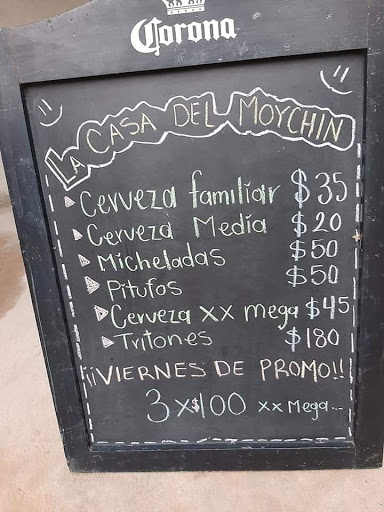 Corona
LA CASA DEL MOYCHIN
Cerveza familiar $35
Cerveza Media $20
Micheladas $50
Pitufos $50
Cerveza xx mega $45
Tritones $180
¡¡VIERNES DE PROMO!!
3x$100 xx Mega...